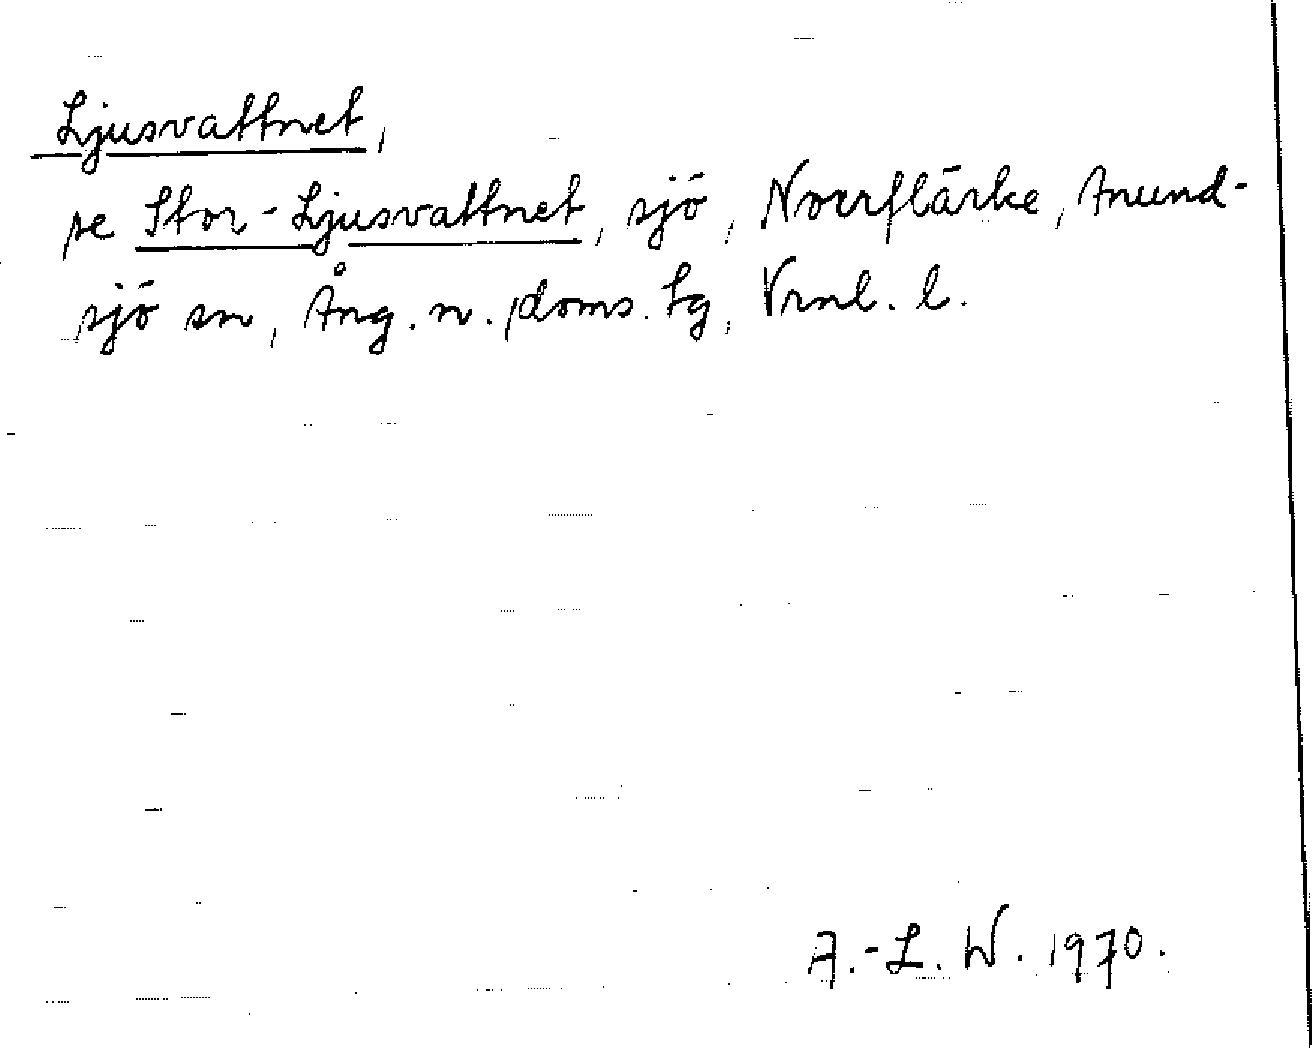 Ljusvattnet,
se Stor-Ljusvattnet, sjö, Norrflärke, Anund-
sjö sn, Ång. n. doms. tg, Vrnl. l.
A.-L. W. 1970.